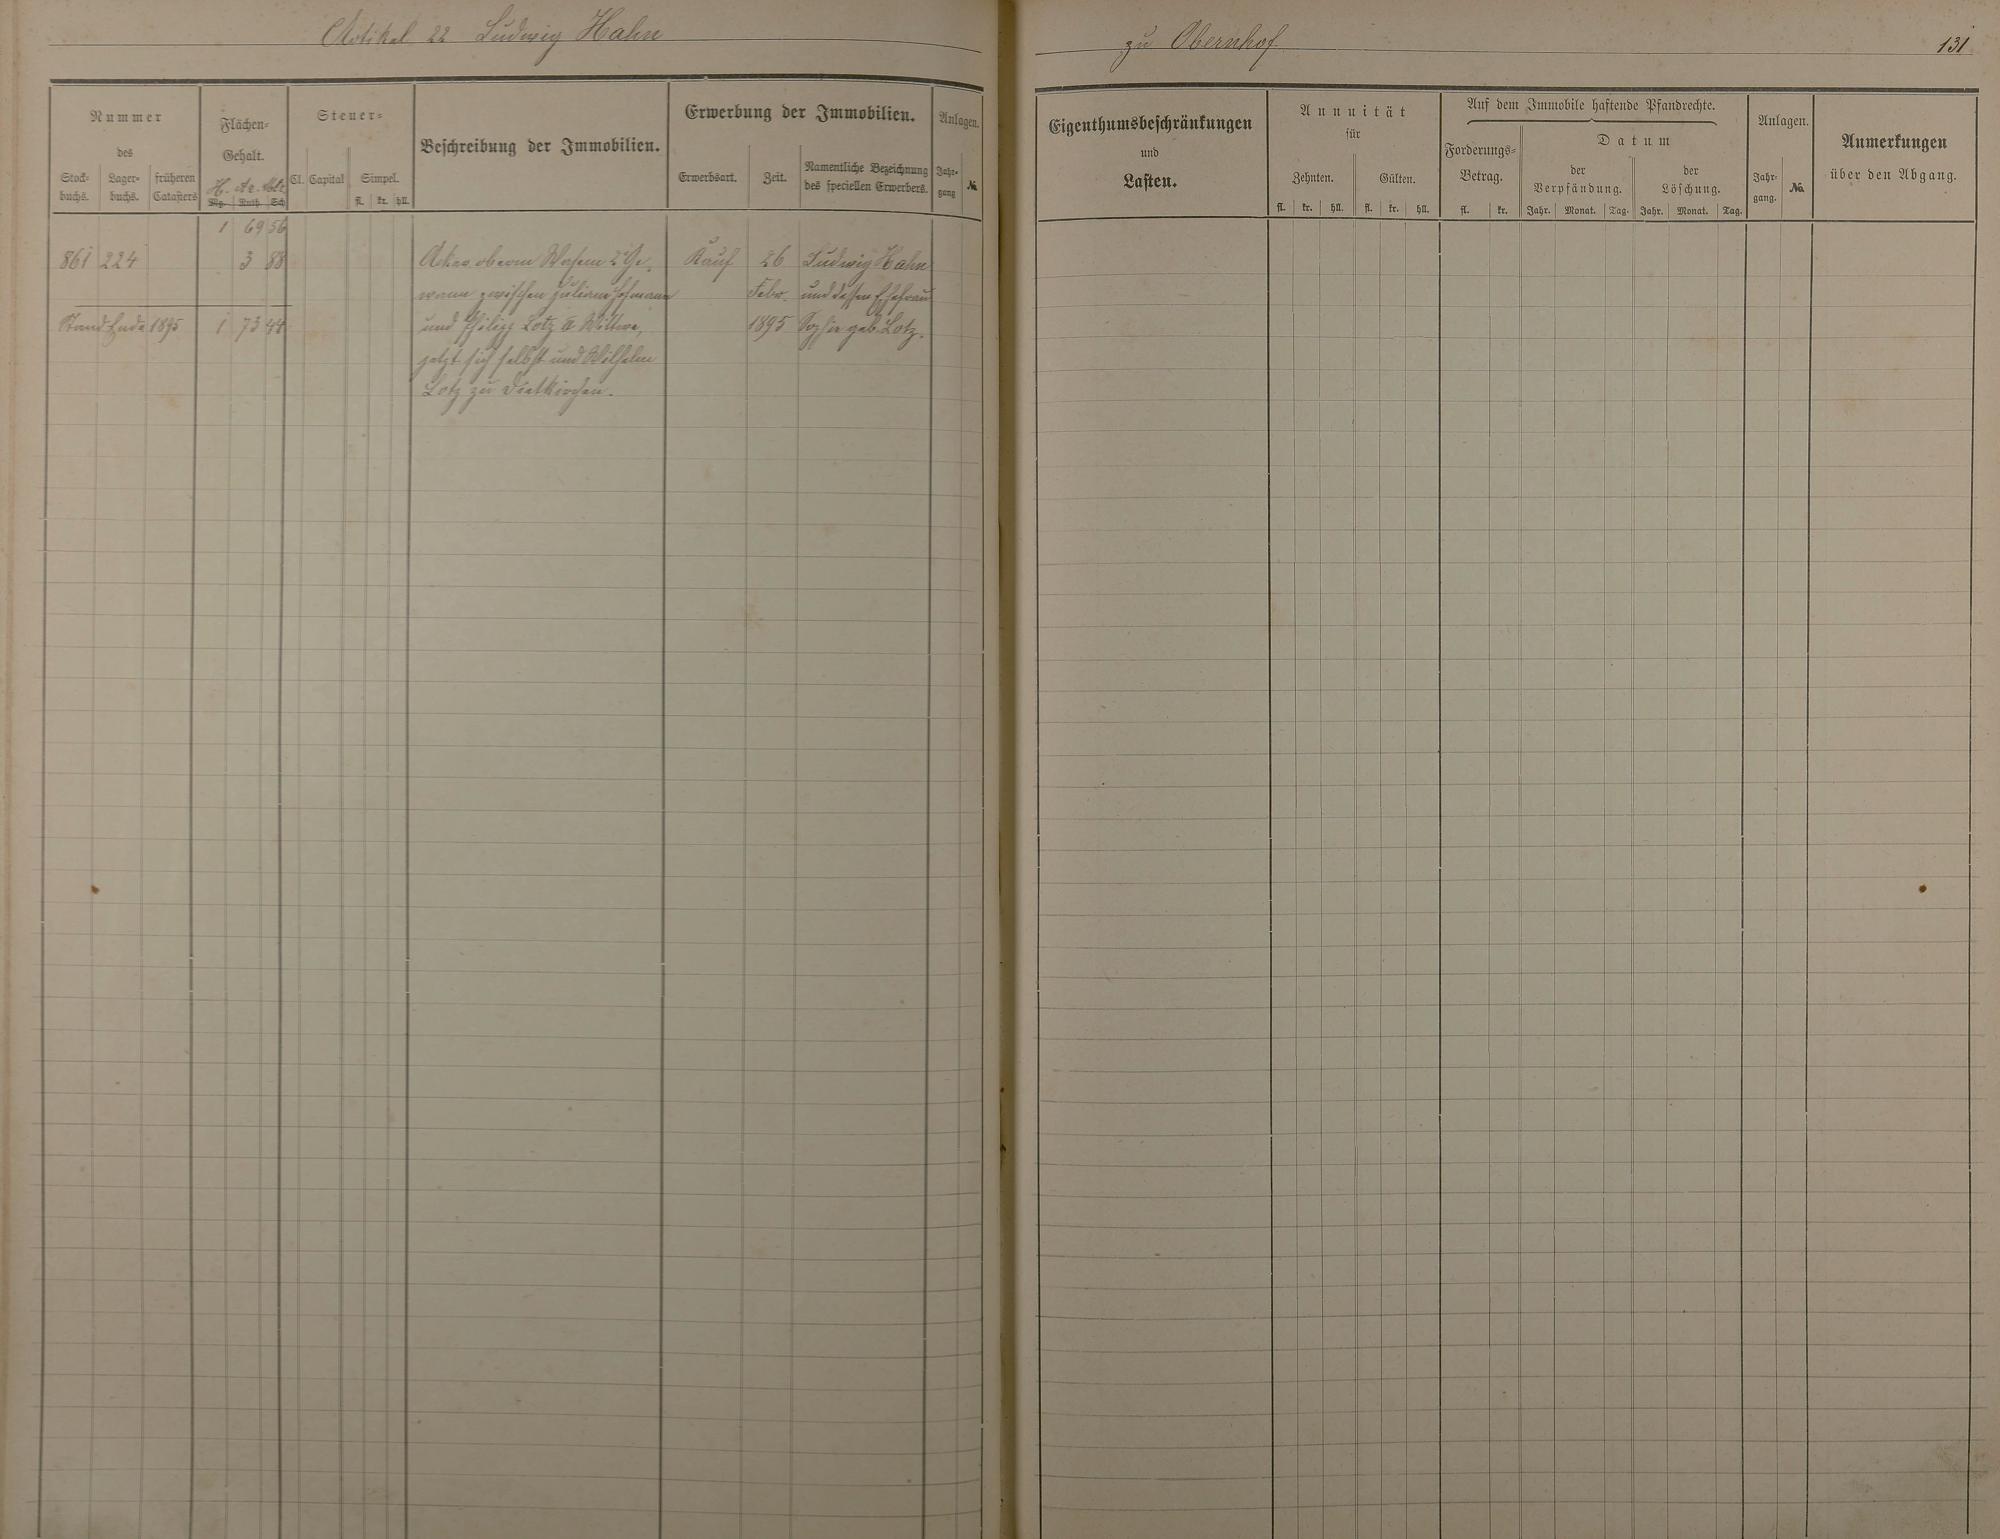 Artikel 22 Ludwig Hahn
Nummer
des
Stock-
buchs.
Lager-
buchs.
früheren
Catasters
Flächen-
Gehalt.
H. Ar. Mtr.
Mg. Ruth. Sch.
Steuer-
Cl. Capital Simpel.
fl. kr. hll.
Beschreibung der Immobilien.
Erwerbung der Immobilien.
Erwerbsart. Zeit.
Namentliche Bezeichnung
des speciellen Erwerbers.
Anlagen.
Jahr-
gang
№
1 69 56
861 224 3 88 Acker oberm Wasem 2 Ge- Kauf 26 Ludwig Hahn
wann zwischen Juliane Hofmann Febr. und dessen Ehefrau
Stand Ende 1895 1 73 44 und Philipp Lotz Wittwe, 1895 Sophie geb. Lotz.
jetzt sich selbst und Wilhelm
Lotz zu Dietkirchen.
zu Obernhof
131
Eigenthumsbeschränkungen
und
Lasten.
Annuität
für
Zehnten. Gülten.
fl. kr. hll. fl. kr. hll.
Auf dem Immobile haftende Pfandrechte.
Forderungs-
Betrag.
fl. kr.
Datum
der
Verpfändung.
der
Löschung.
Jahr. Monat. Tag. Jahr. Monat. Tag.
Anlagen.
Jahr-
gang.
№.
Anmerkungen
über den Abgang.